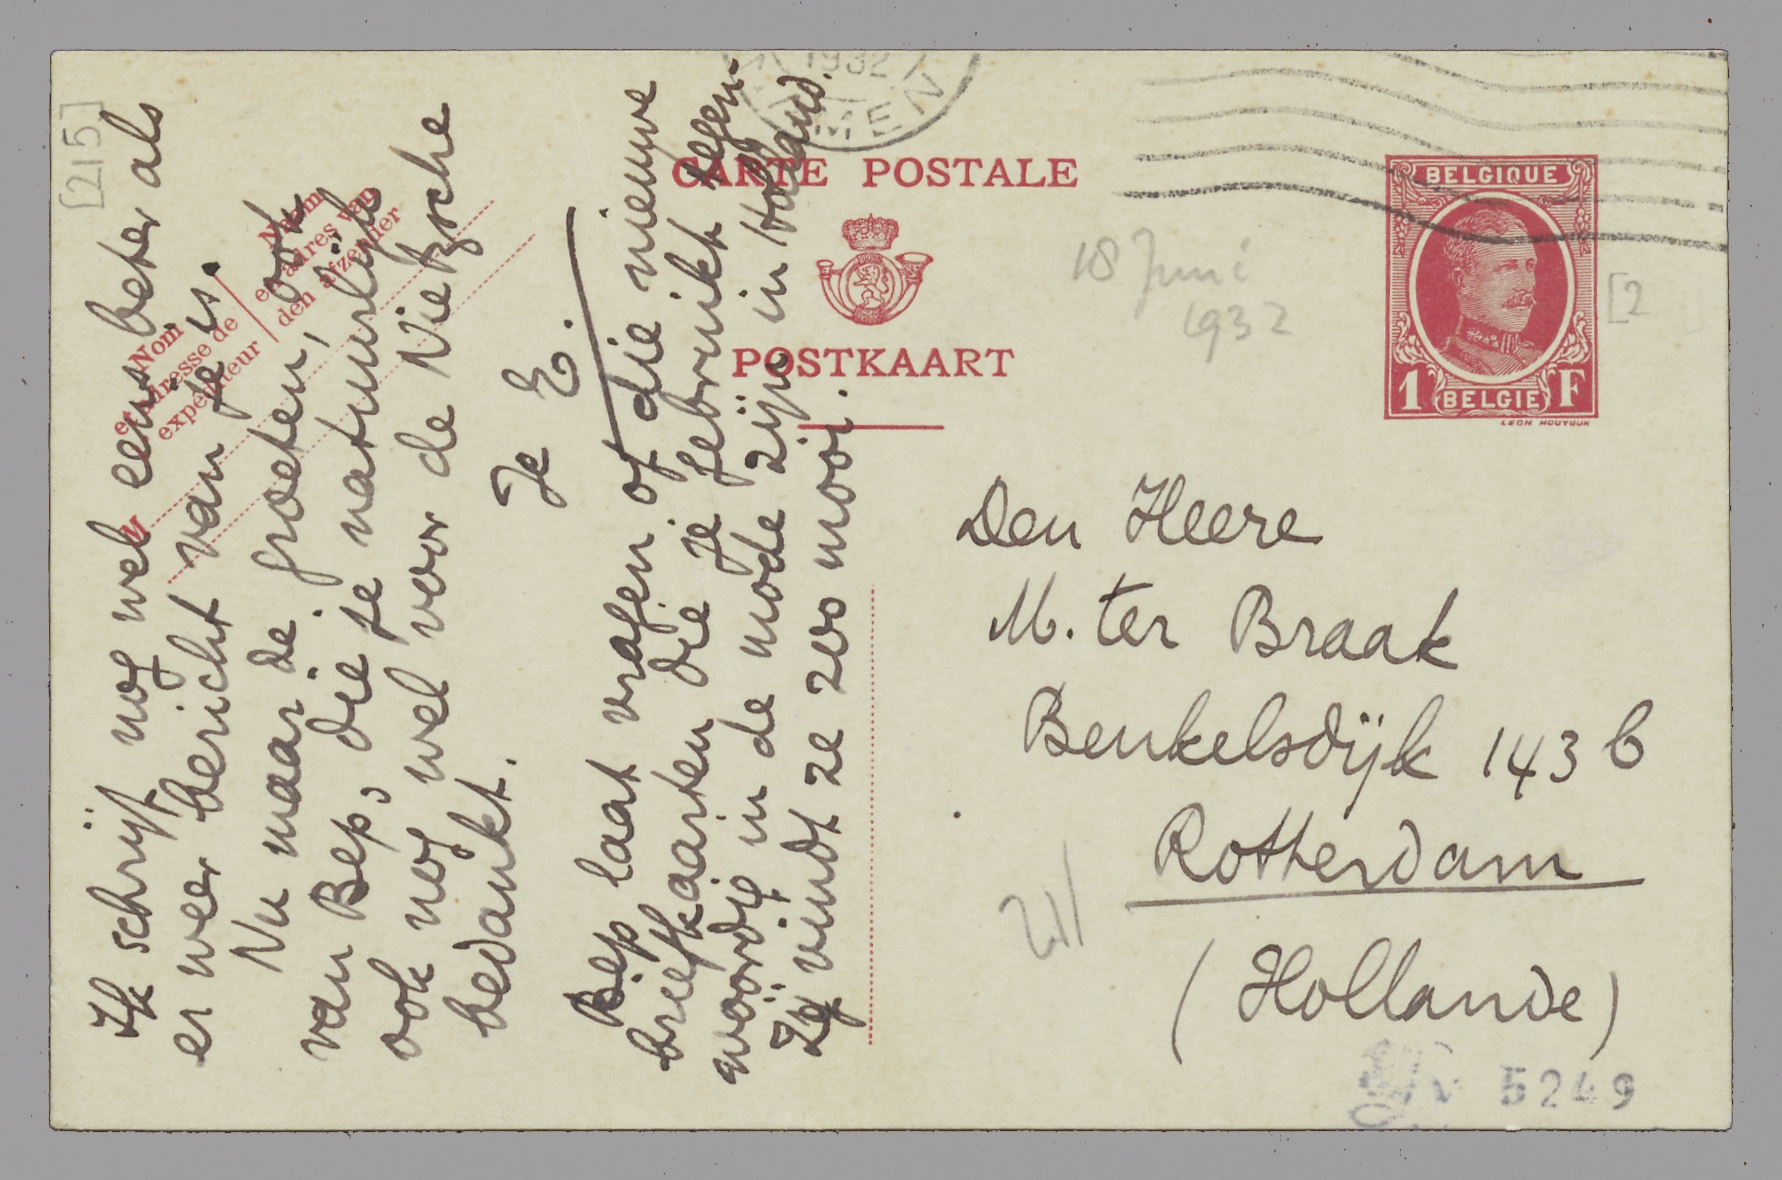 [215]
Ik schrijf nog wel eens beter als
er weer bericht van je is.
Nu maar de groeten, ook
van Bep, die je natuurlijk
ook nog wel voor de Nietzsche
bedankt.
Je E.
Bep laat vragen of die nieuwe
briefkaarten die je gebruikt tegen-
woordig in de mode zijn in Holland.
Zij vindt ze zoo mooi.
Nom
et adresse de
expéditeur
Naam
en adres van
den afzender
1932
MEN
CARTE POSTALE
POSTKAART
18 Juni
1932
BELGIQUE
1 BELGIE F
[2
Den Heere
M. ter Braak
Beukelsdijk 143 b
Rotterdam
(Hollande)
211
5249